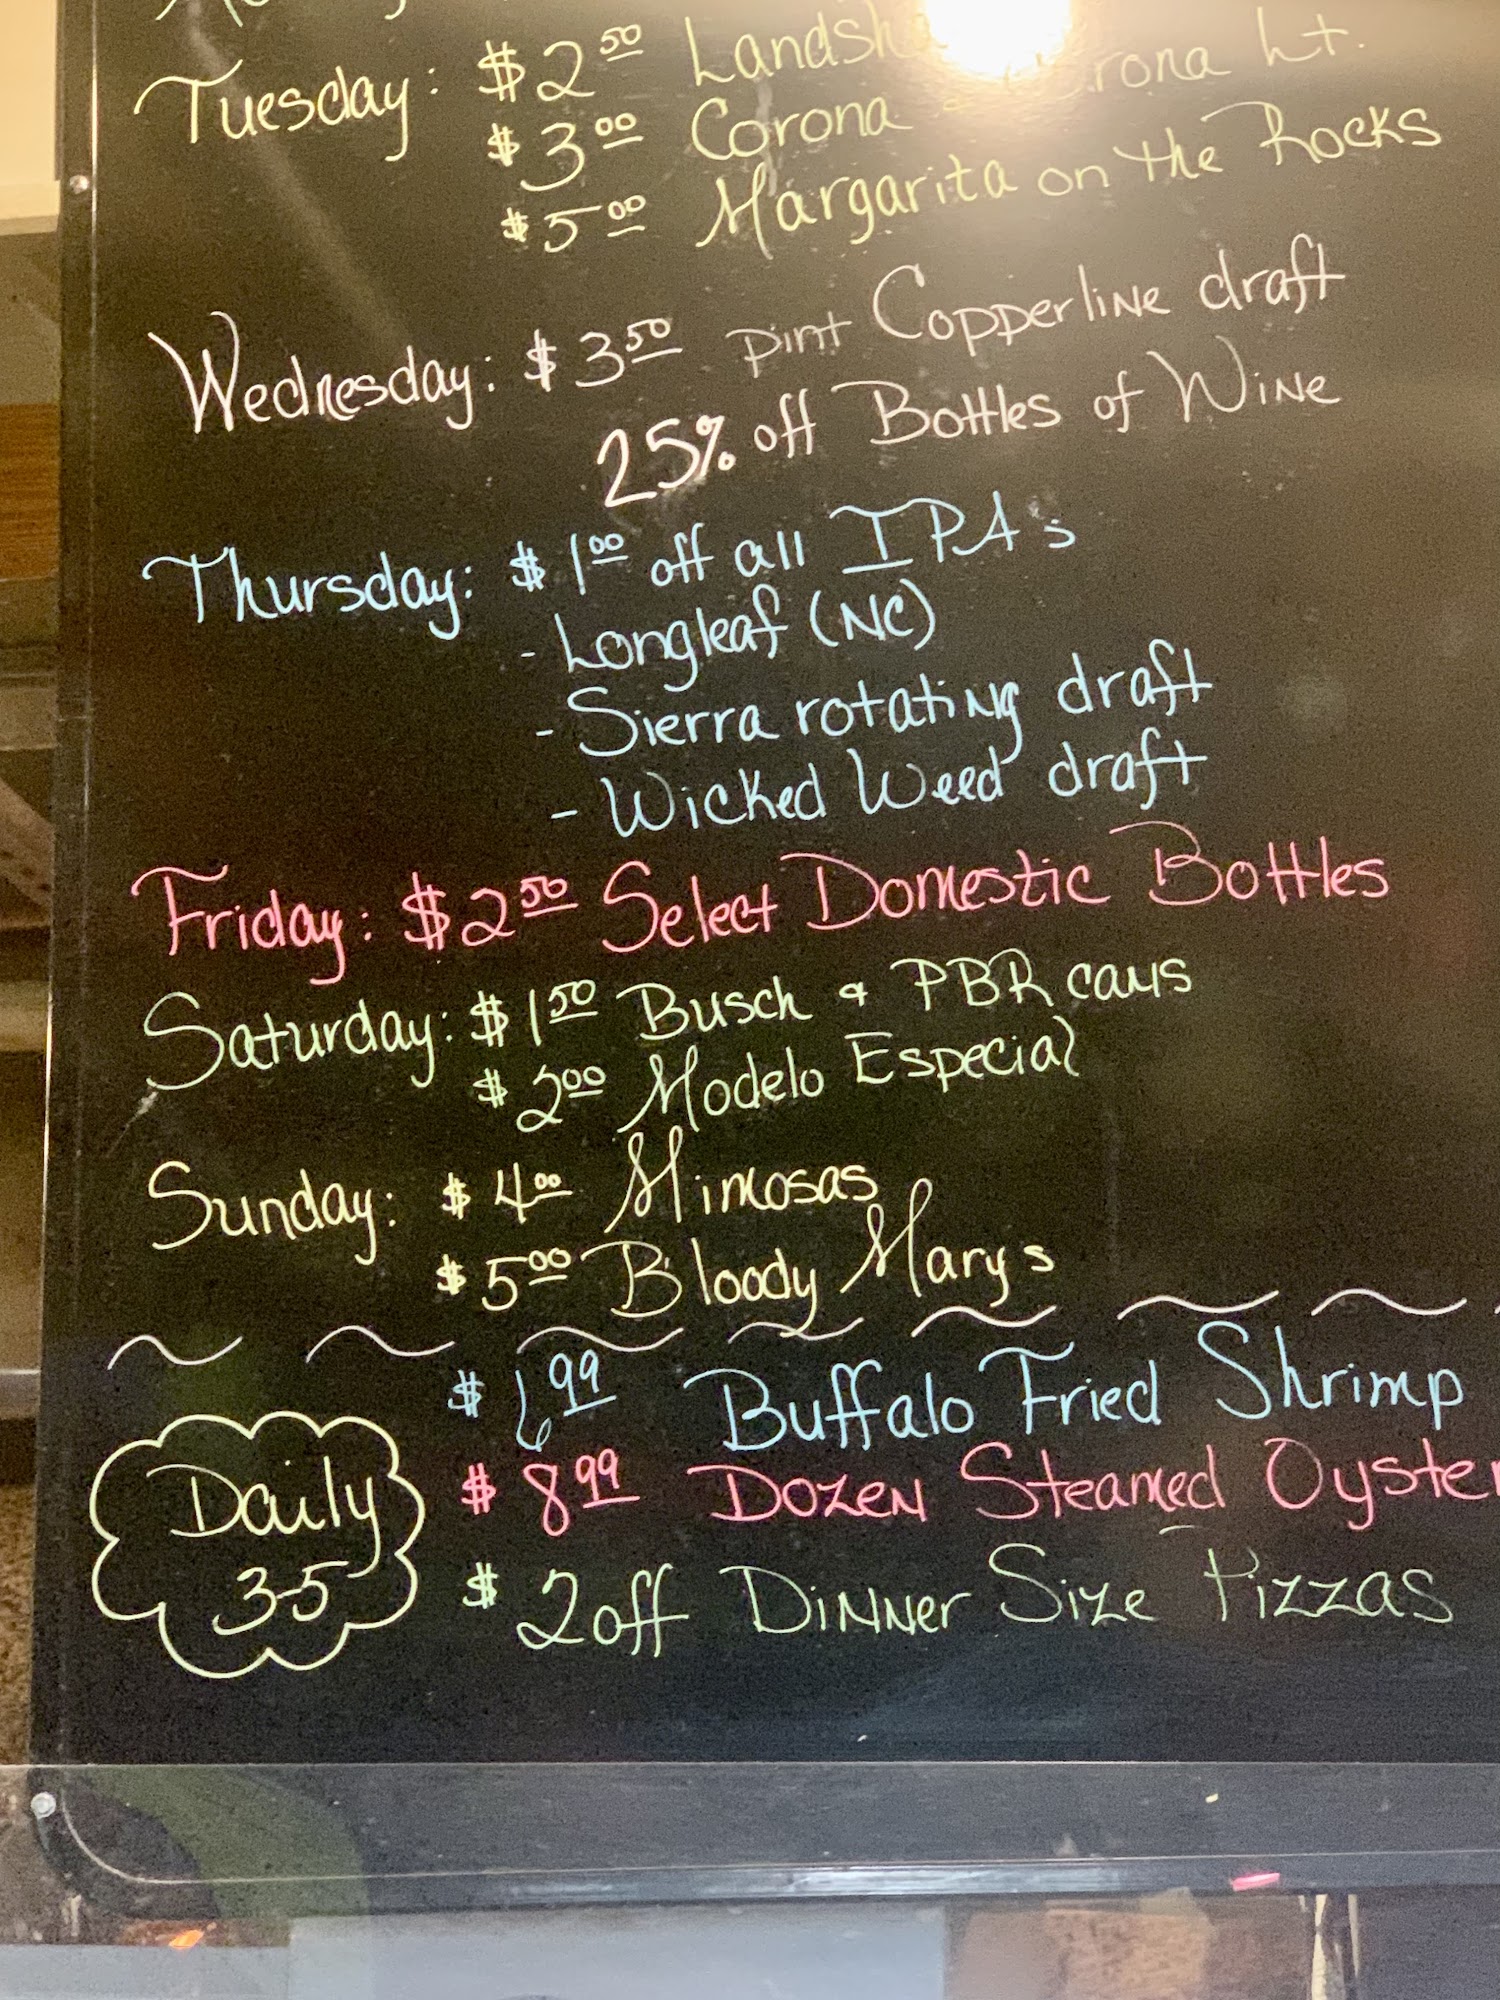 Tuesday: $2.50 Landsh
$3.00 Corona & Corona Lt.
$5.00 Margarita on the Rocks
Wednesday: $3.50 pint Copperline draft
25% off Bottles of Wine
Thursday: $1.00 off all IPA's
- Longleaf (NC)
- Sierra rotating draft
- Wicked Weed draft
Friday: $2.50 Select Domestic Bottles
Saturday: $1.50 Busch & PBR cans
$2.00 Modelo Especial
Sunday: $4.00 Mimosas
$5.00 Bloody Mary's
Daily
3-5
$6.99 Buffalo Fried Shrimp
$8.99 Dozen Steamed Oyster
$2 off Dinner Size Pizzas